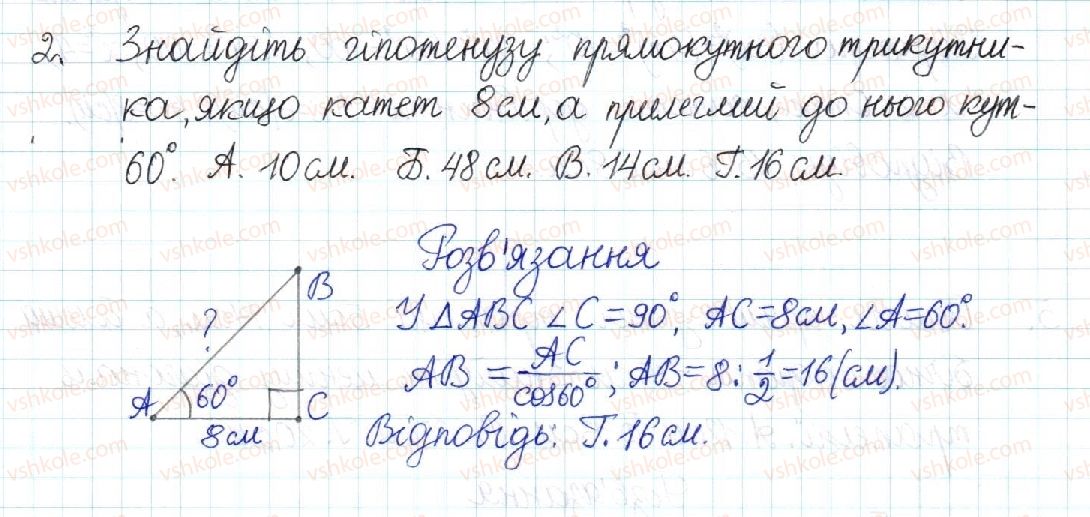 2. Знайдіть гіпотенузу прямокутного трикутни-
ка, якщо катет 8 см, а прилеглий до нього кут -
60°. А. 10 см. Б. 48 см. В. 14 см. Г. 16 см.
Розв'язання
B
У △ABC ∠C = 90°, AC = 8 см, ∠A = 60°.
?
AB = AC/cos60°; AB = 8 : 1/2 = 16 (см).
A 60° C
8 см
Відповідь: Г. 16 см.
vshkole.com